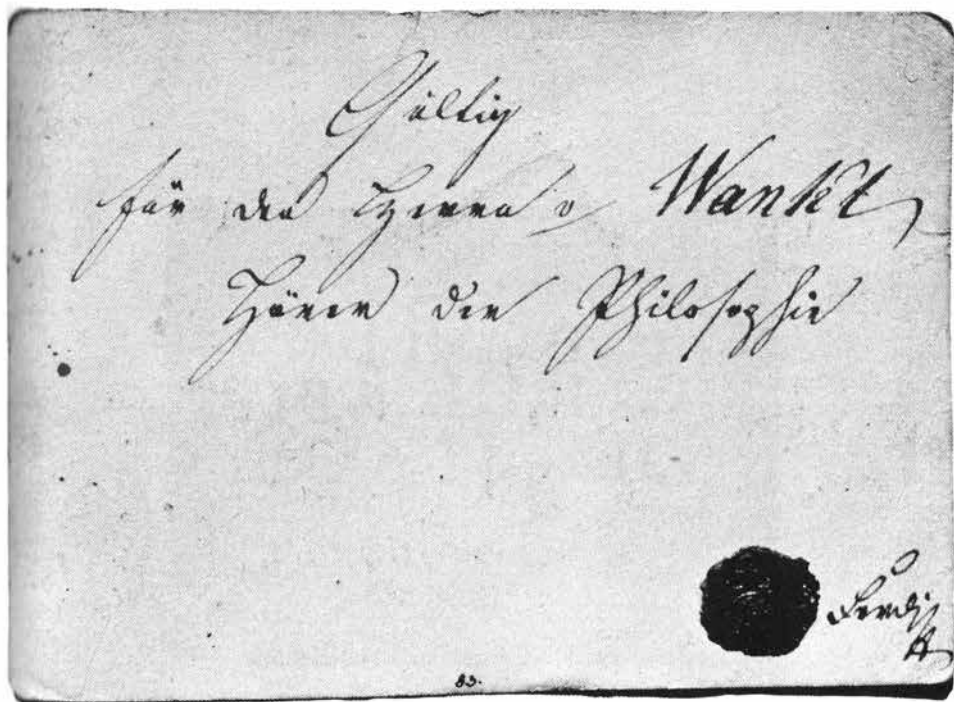 Gültig
für den Herrn v Wankel
Hörer der Philosophie
83.